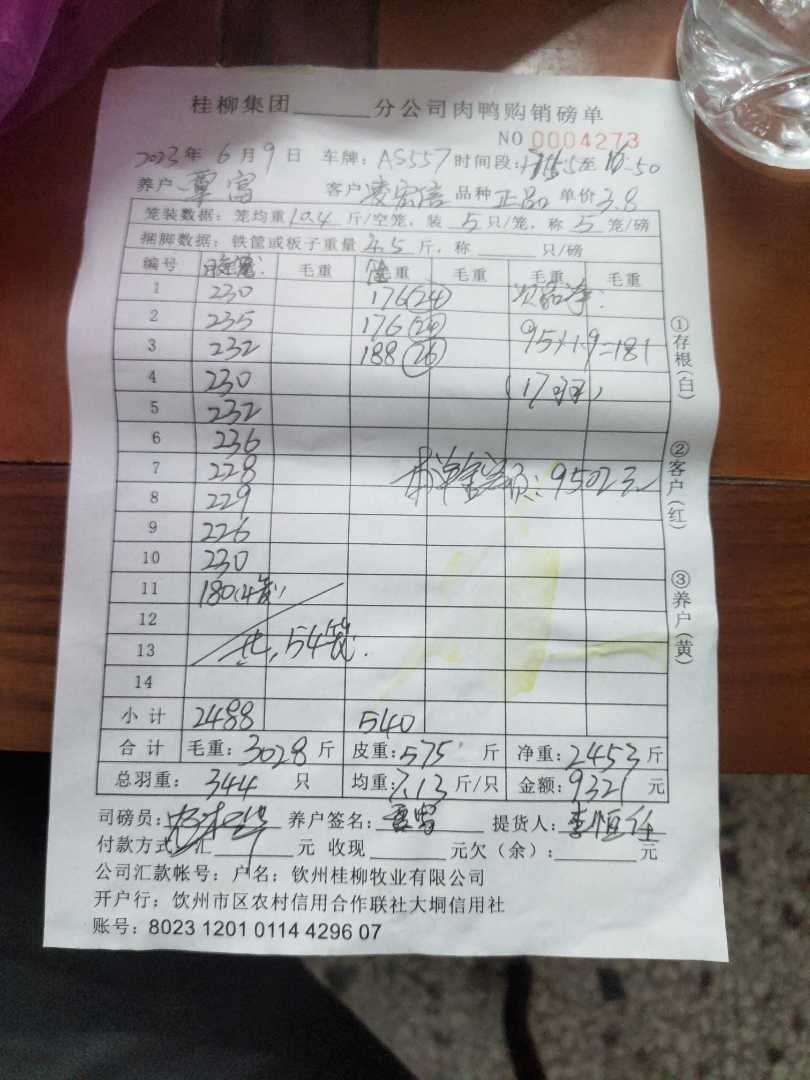 桂柳集团______分公司肉鸭购销磅单
NO 0004273
2023年 6月 9日 车牌: AS557 时间段: 至 16-50
养户 覃富 客户 凌宏信 品种 正品 单价 3.8
笼装数据: 笼均重 10.4 斤/空笼, 装 5 只/笼, 称 5 笼/磅
捆脚数据: 铁筐或板子重量 斤, 称____只/磅
编号 毛重 重 毛重 毛重 毛重
1 230 176(24) 次品净:
2 235 176(20) 95×1.9=181
3 232 188(26)
4 230 (17)
5 232
6 236
7 228 本单金额: 9502元
8 229
9 226
10 230
11 180(4笼)
12
13 共54笼.
14
小计 2488 540
合计 毛重: 3028 斤 皮重: 575 斤 净重: 2453 斤
总羽重: 344 只 均重: 7.13 斤/只 金额: 9321 元
司磅员: 养户签名: 覃富 提货人: 李恒任
付款方式: 汇______元 收现______元欠(余):______元
公司汇款帐号: 户名: 钦州桂柳牧业有限公司
开户行: 钦州市区农村信用合作联社大垌信用社
账号: 8023 1201 0114 4296 07
①存根(白)
②客户(红)
③养户(黄)